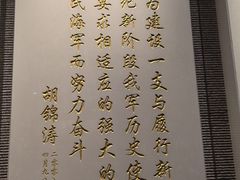 为建设一支与履行新
纪新阶段我军历史使
要求相适应的强大的
民海军而努力奋斗
胡锦涛
二〇〇
四月九